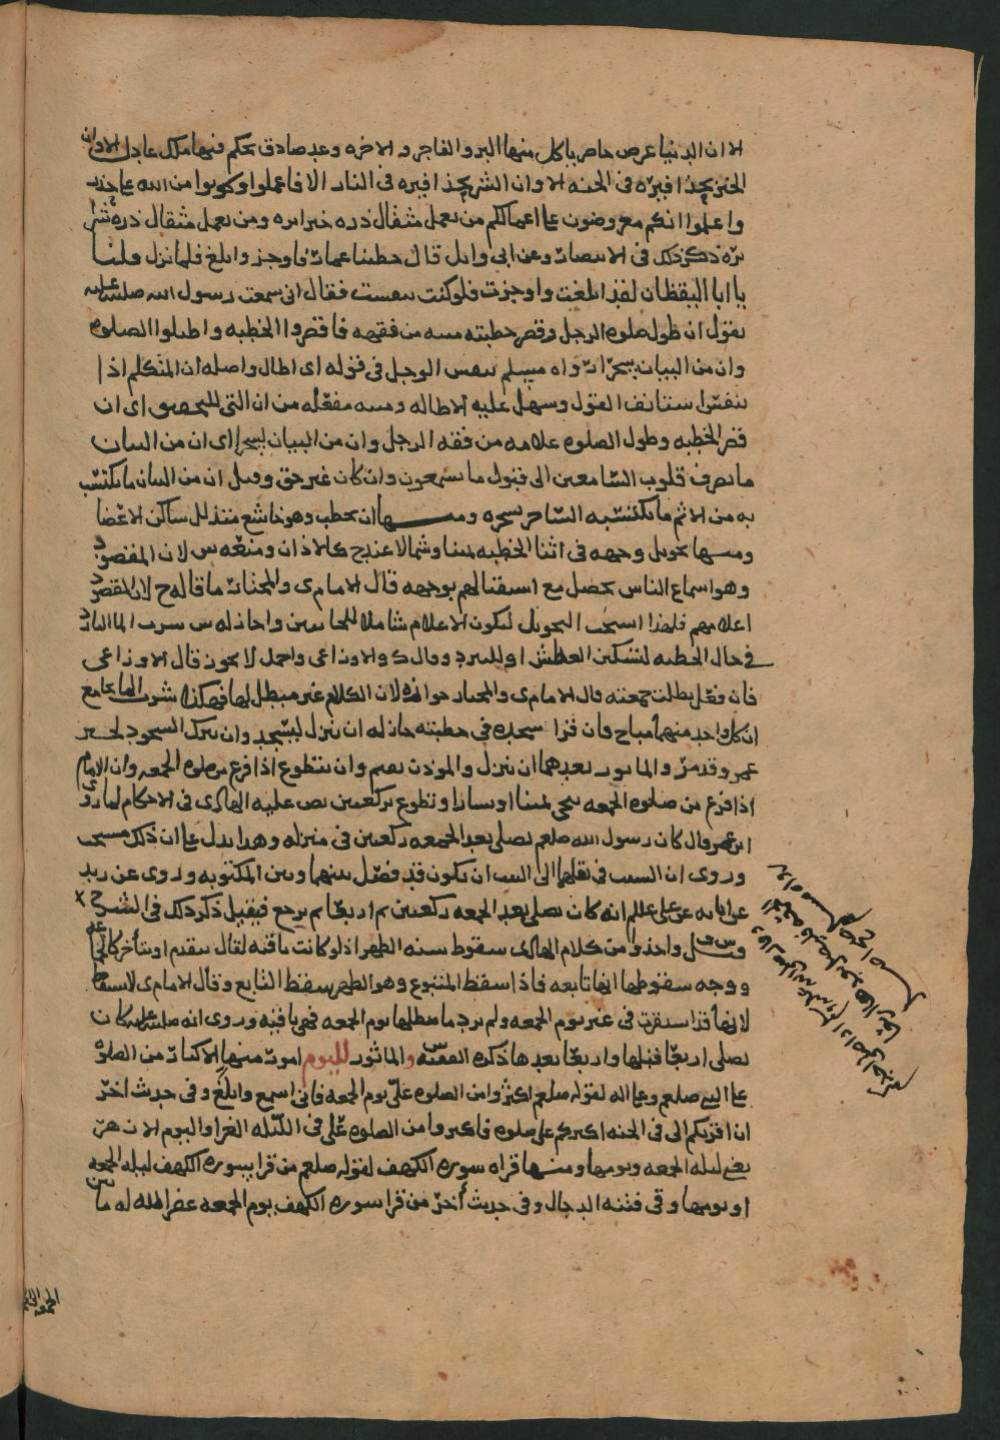 الا ان الدنيا عرض حاضر ياكل منها البر والفاجر والاخره وعد صادق يحكم فيها ملك عادل الا وان
الخير بحذافيره في الجنه الا وان الشر بحذافيره في النار الا فاعملوا وكونوا من الله على حذر
واعلموا انكم معروضون على اعمالكم من يعمل مثقال ذره خيرا يره ومن يعمل مثقال ذره شرا
يره ذكر ذلك في الانتصار وعن ابي وايل قال خطبنا عمار فاوجز وابلغ فلما نزل قلنا
يا ابا اليقظان لقد ابلغت واوجزت فلو كنت تنفست فقال اني سمعت رسول الله صلى الله عليه
يقول ان طول صلوه الرجل وقصر خطبته مينه من فقهه فاقصروا الخطبه واطيلوا الصلوه
وان من البيان سحرا رواه مسلم تنفس الرجل في قوله اي اطال واصله ان المتكلم اذا
تنفس استانف القول وسهل عليه الاطاله ومينه مفعله من ان التي للتحقيق اي ان
قصر الخطبه وطول الصلوه علامه من فقه الرجل وان من البيان لسحرا اي ان من البيان
ما يصرف قلوب السامعين الى قبول ما يسمعون وان كان غير حق وقيل ان من البيان ما يكتسب
به من الاثم ما يكتسبه الساحر بسحره ومنها ان يخطب وهو خاشع متذلل ساكن الاعضا
ومنها تحويل وجهه في اثنا الخطبه يمينا وشمالا عند ح كالاذان ومنعه س لان المقصود
وهو اسماع الناس يحصل مع استقبالهم بوجهه قال الامام ى والمختار ما قاله ح لان المقصود
اعلامهم فلهذا استحب التحويل ليكون الاعلام شاملا للجانبين واجاز له س شرب الما البارد
في حال الخطبه لتسكين العطش او للتبرد وقال ك والاوزاعي واحمد لا يجوز قال الاوزاعي
فان فعل بطلت جمعته قال الامام ى والمختار جوازه لان الكلام غير مبطل لها فهكذا شرب الما بجامع
ان كل واحد منهما مباح فان قرا سجده في خطبته جاز له ان ينزل ليسجد وان يترك السجود لخبر
عمر وقد مر والماثور بعدهما ان ينزل والموذن يقيم وان يتطوع اذا فرغ من صلوه الجمعه وان الامام
اذا فرغ من صلوه الجمعه تنحى يمينا او يسارا وتطوع بركعتين نص عليه الهادى في الاحكام لما روى
ابن عمر قال كان رسول الله صلعم يصلي بعد الجمعه ركعتين في منزله وهذا يدل على ان ذلك مستحب
وروى ان السبب في نقلها الى البيت ان يكون قد فصل بينهما وبين المكتوبه وروى عن زيد
عن ابايه عن علي علم انه كان يصلي بعد الجمعه ركعتين ثم اربعا ثم يرجع فيقيل ذكر ذلك في الشرح
قيل واخذوا من كلام الهادى سقوط سنه الظهر اذ لو كانت باقيه لقال يتقدم او يتأخر
ووجه سقوطها انها تابعه فاذا سقط المتبوع وهو الظهر سقط التابع وقال الامام ى لا تسقط
لانها قد استقرت في غير يوم الجمعه ولم يرد ما يبطلها يوم الجمعه فهي باقيه وروى انه صلى الله عليه كان
يصلي اربعا قبلها واربعا بعدها ذكره والماثور لليوم امور منها الاكثار من الصلوه
على النبي صلعم وعلى اله لقوله صلعم اكثروا من الصلوه علي يوم الجمعه فاني اسمع وابلغ وفي حديث اخر
ان اقربكم الي في الجنه اكثركم علي صلوه فاكثروا من الصلوه علي في الليله الغرا واليوم الازهر
يعني ليله الجمعه ويومها ومنها قراه سوره الكهف لقوله صلعم من قرا سوره الكهف ليله الجمعه
او يومها وقي فتنه الدجال وفي حديث أخر من قرا سوره الكهف يوم الجمعه غفر الله له ما بين
الجمعه الى